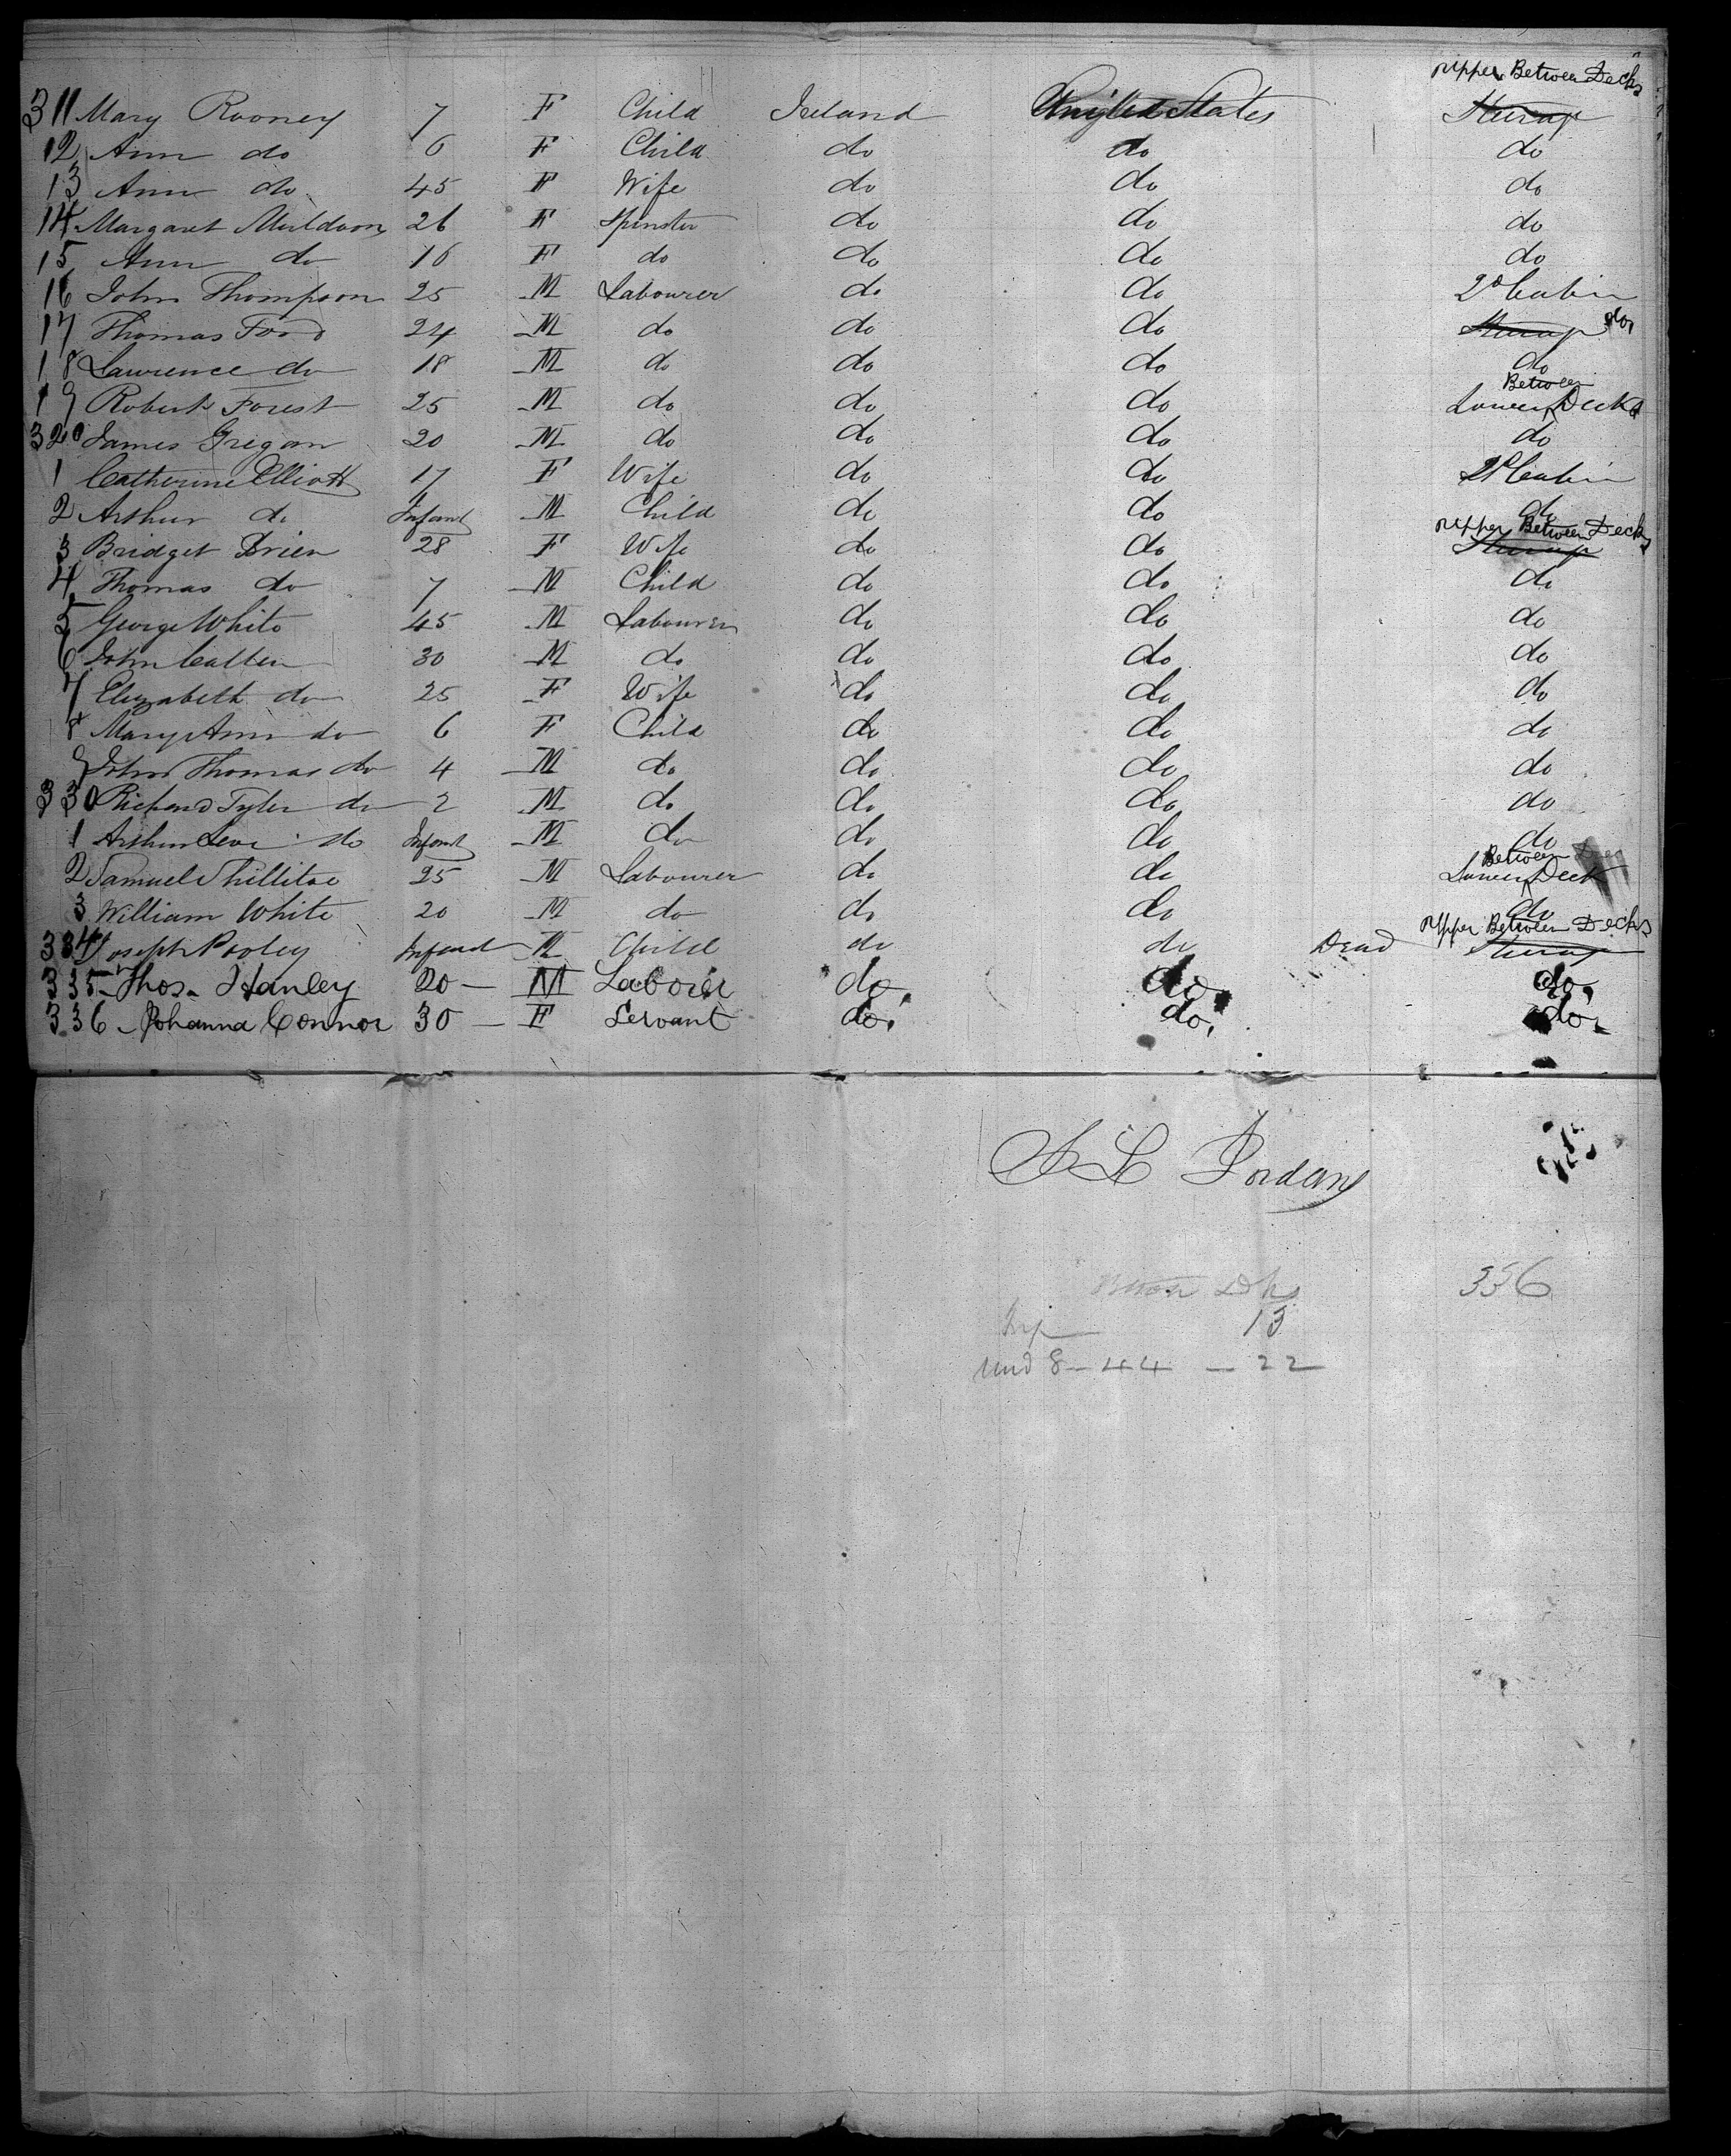 Upper Between Decks
311 Mary Rooney 7 F Child Ireland United States Steerage
12 Ann do 6 F Child do do do
13 Ann do 45 F Wife do do do
14 Margaret Muldoon 26 F Spinster do do do
15 Ann do 16 F do do do do
16 John Thompson 25 M Labourer do do 2d Cabin
17 Thomas Ford 24 M do do do Steerage do,
18 Lawrence do 18 M do do do do
Between
19 Robert Forest 25 M do do do Lower Decks
320 James Gregan 20 M do do do do
1 Catherine Elliott 17 F Wife do do 2d Cabin
2 Arthur do Infant M Child do do do
Upper Between Decks
3 Bridget Brien 28 F Wife do do Steerage
4 Thomas do 7 M Child do do do
5 George White 45 M Labourer do do do
6 John 30 M do do do do
7 Elizabeth do 25 F Wife do do do
8 Mary Ann do 6 F Child do do do
9 John Thomas do 4 M do do do do
330 Richard Tyler do 2 M do do do do
1 Arthur Levi do Infant M do do do do
Between
2 Samuel Phillitoe 25 M Labourer do do Lower Deck
3 William White 20 M do do do do
Upper Between Decks
334 Joseph Pooley Infant M Child do do Dead Steerage
335 - Thos. Hanley 20 - M Laborer do, do, do,
336 - Johanna Connor 30 - F Servant do, do, do,
Jordan
336
Between Dks
Inf 13
und 8 - 44 - 22